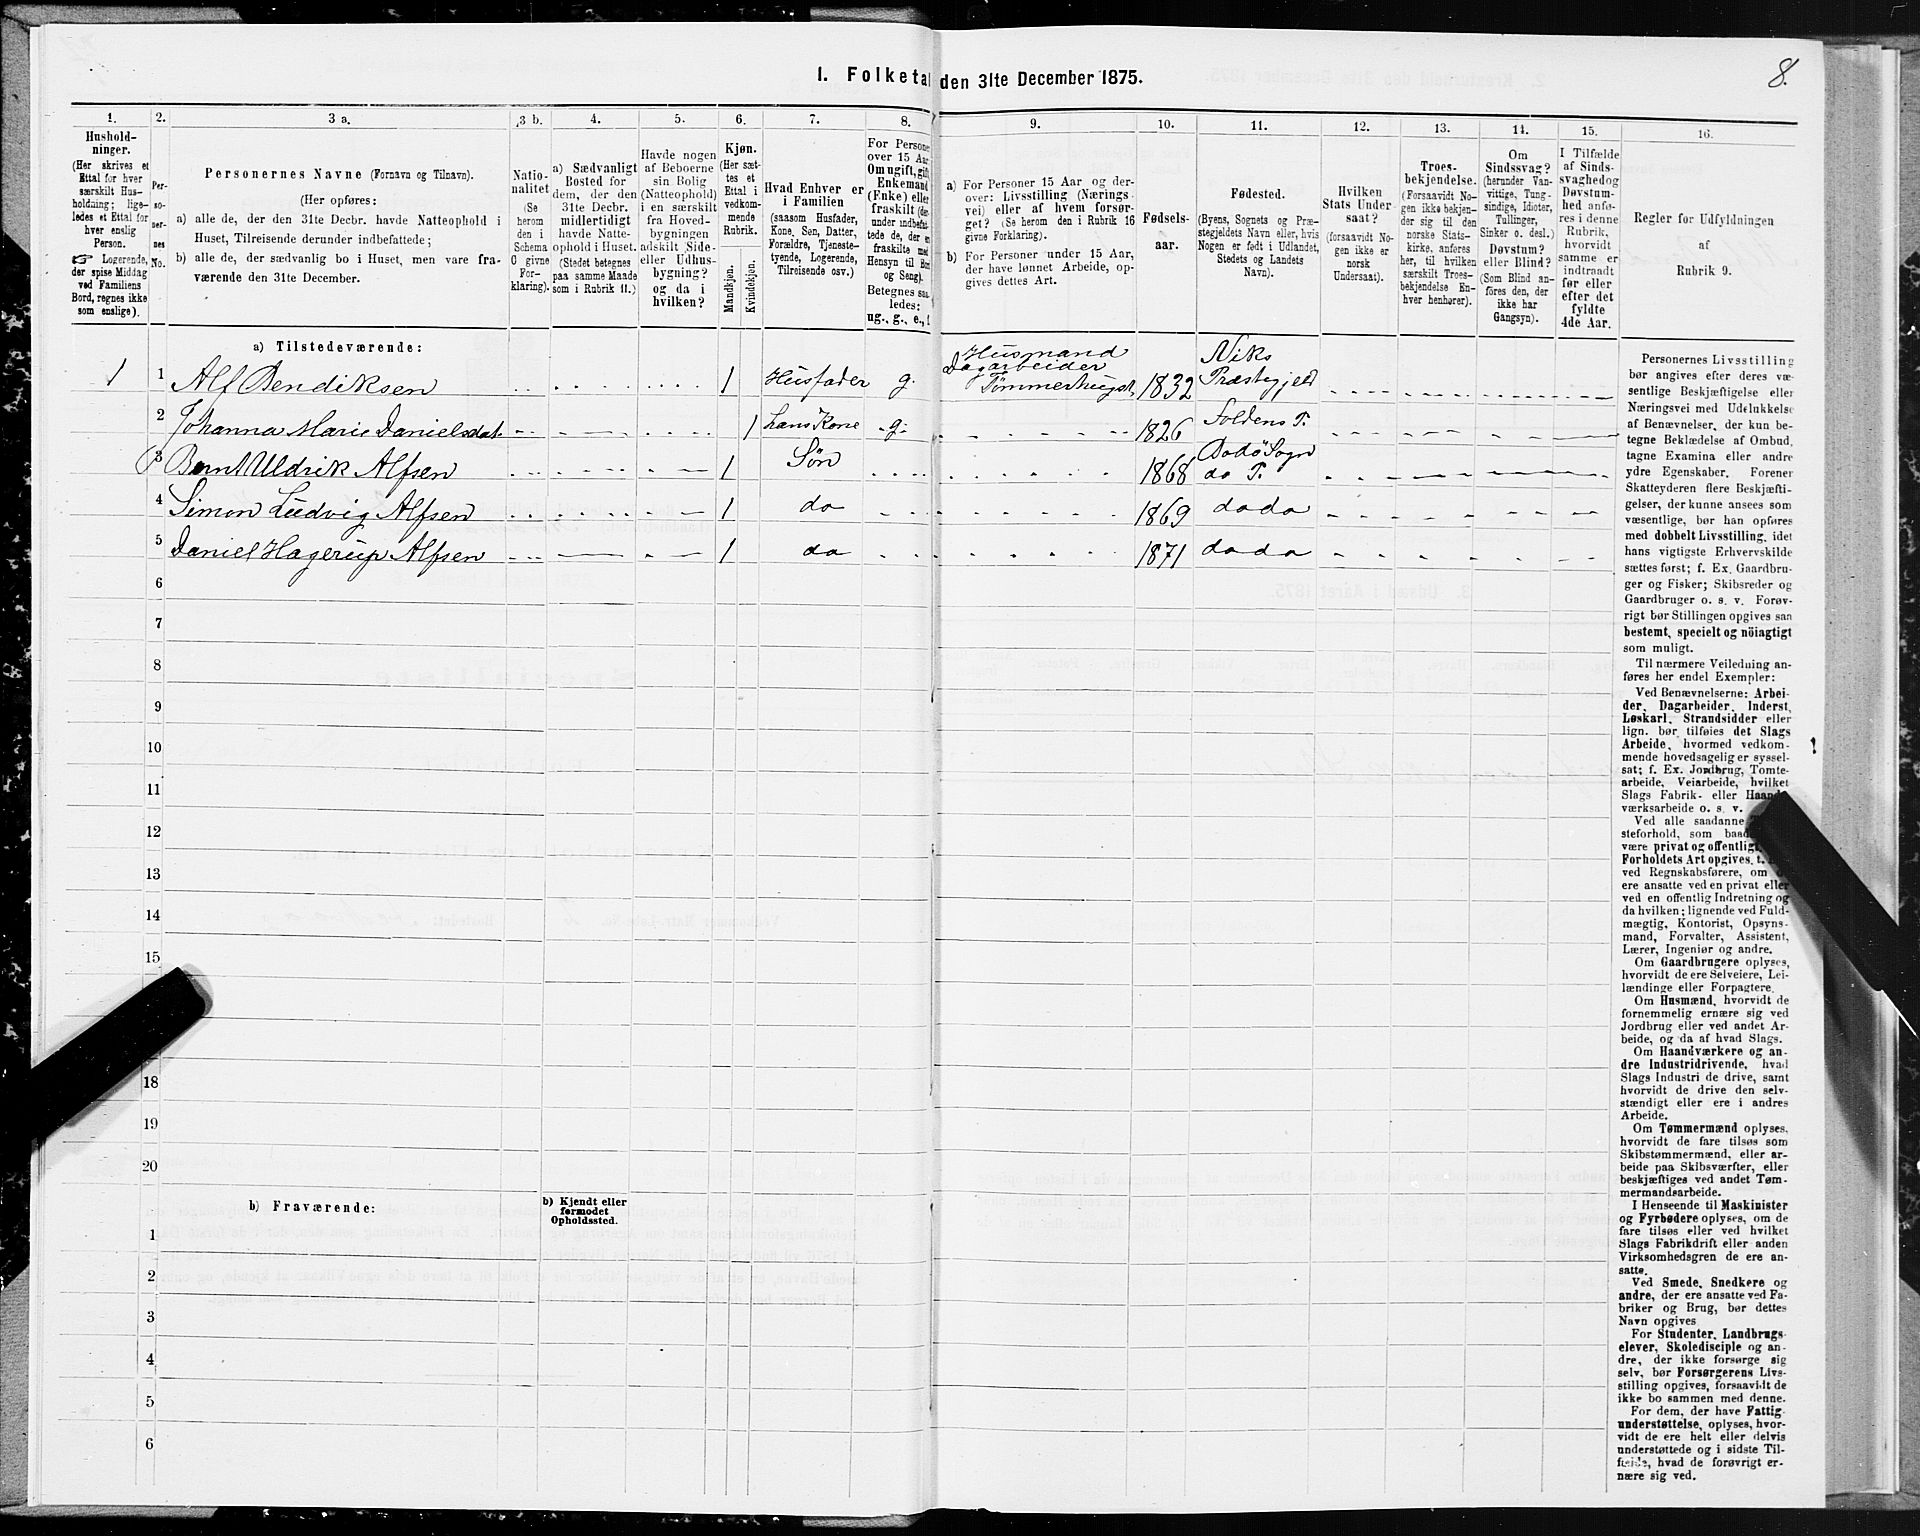 1. Folketal den 31te December 1875.
8.
1.
Hushold-
ninger.
(Her skrives et
Ettal for hver
særskilt Hus-
holdning; lige-
ledes et Ettal for
hver enslig
Person.
☞ Logerende,
der spise Middag
ved Familiens
Bord, regnes ikke
som enslige).
2.
Per-
so-
ner-
nes
No.
3 a.
Personernes Navne (Fornavn og Tilnavn).
(Her opføres:
a) alle de, der den 31te Decbr. havde Natteophold i
Huset, Tilreisende derunder indbefattede;
b) alle de, der sædvanlig bo i Huset, men vare fra-
værende den 31te December.
3 b.
Natio-
nalitet
(Se
herom
den i
Schema
O givne
For-
klaring).
4.
a) Sædvanligt
Bosted for
dem, der den
31te Decbr.
midlertidigt
havde Natte-
ophold i Huset.
(Stedet betegnes
paa samme Maade
som i Rubrik 11.)
5.
Havde nogen
af Beboerne
sin Bolig
(Natteophold)
i en særskilt
fra Hoved-
bygningen
adskilt Side-
eller Udhus-
bygning?
og da i
hvilken?
6.
Kjøn.
(Her sæt-
tes et
Ettal i
vedkom-
mende
Rubrik.
Mandkjøn.
Kvindekjøn.
7.
Hvad Enhver er
i Familien
(saasom Husfader,
Kone, Søn, Datter,
Forældre, Tjeneste-
tyende, Logerende,
Tilreisende osv.)
8.
For Persone
over 15 Aar
Om ugift, gift
Enkemand
(Enke) eller
fraskilt (der-
under indbefat-
tede de, der er
fraskilte med
Hensyn til Bord
og Seng).
Betegnes saa-
ledes:
ug., g., e., f.
9.
a) For Personer 15 Aar og der-
over: Livsstilling (Nærings-
vei) eller af hvem forsør-
get? (Se herom den i Rubrik 16
givne Forklaring).
b) For Personer under 15 Aar,
der have lønnet Arbeide, op-
gives dettes Art.
10.
Fødsels-
aar.
11.
Fødested.
(Byens, Sognets og Præ-
stegjeldets Navn eller, hvis
Nogen er født i Udlandet,
Stedets og Landets
Navn).
12.
Hvilken
Stats Under-
saat?
(forsaavidt No-
gen ikke er
norsk
Undersaat).
13.
Troes-
bekjendelse.
(Forsaavidt No-
gen ikke bekjen-
der sig til den
norske Stats-
kirke, anføres
her, til hvilken
særskilt Troes-
bekjendelse En-
hver henhører).
14.
Om
Sindssvag?
(herunder Van-
vittige, Tung-
sindige, Idioter,
Tullinger,
Sinker o. desl.)
Døvstum?
eller Blind?
(Som Blind an-
føres den, der
ikke har
Gangsyn).
15.
I Tilfælde
af Sinds-
svaghed og
Døvstum-
hed anfø-
res i denne
Rubrik,
hvorvidt
samme er
indtraadt
før eller
efter det
fyldte
4de Aar.
16.
Regler for Udfyldningen
af
Rubrik 9.
a) Tilstedeværende:
1 1 Alf Bendiksen 1 Husfader g. Husmand
Dagarbeider
Tømmerhugst. 1832 Niks
Præstegjeld
2 Johanna Marie Danielsdat. 1 hans Kone g. 1826 Foldens P.
3 Bernt Uldrik Alfsen 1 Søn 1868 Bodø Sogn
do P.
4 Simon Ludvig Alfsen 1 do 1869 do do
5 Daniel Hagerup Alfsen 1 do 1871 do do
6
7
8
9
10
11
12
13
14
15
18
19
20
b) Fraværende:
b) Kjendt eller
formodet
Opholdssted.
1
2
3
4
5
6
Personernes Livsstilling
bør angives efter deres væ-
sentlige Beskjæftigelse eller
Næringsvei med Udelukkelse
af Benævnelser, der kun be-
tegne Beklædelse af Ombud,
tagne Examina eller andre
ydre Egenskaber. Forener
Skatteyderen flere Beskjæfti-
gelser, der kunne ansees som
væsentlige, bør han opføres
med dobbelt Livsstilling, idet
hans vigtigste Erhvervskilde
sættes først; f. Ex. Gaardbru-
ger og Fisker; Skibsreder og
Gaardbruger o. s. v. Forøv-
rigt bør Stillingen opgives saa
bestemt, specielt og nöiagtigt
som muligt.
Til nærmere Veiledning an-
føres her endel Exempler:
Ved Benævnelserne: Arbei-
der, Dagarbeider, Inderst,
Løskarl, Strandsidder eller
lign. bør tilføies det Slags
Arbeide, hvormed vedkom-
mende hovedsagelig er syssel-
sat; f. Ex. Jordbrug, Tomte-
arbeide, Veiarbeide, hvilket
Slags Fabrik- eller Haand-
værksarbeide o. s. v.
Ved alle saadanne
steforhold, som baade
være privat og offentligt,
Forholdets Art opgives, t.
ved Regnskabsførere, om
ere ansatte ved en privat eller
ved en offentlig Indretning og
da hvilken; lignende ved Fuld-
mægtig, Kontorist, Opsyns-
mand, Forvalter, Assistent,
Lærer, Ingeniør og andre.
Om Gaardbrugere oplyses,
hvorvidt de ere Selveiere, Lei-
lændinge eller Forpagtere.
Om Husmænd, hvorvidt de
fornemmelig ernære sig ved
Jordbrug eller ved andet Ar-
beide, og da af hvad Slags.
Om Haandværkere og an-
dre Industridrivende, hvad
Slags Industri de drive, samt
hvorvidt de drive den selv-
stændigt eller ere i andres
Arbeide.
Om Tømmermænd oplyses,
hvorvidt de fare tilsøs som
Skibstømmermænd, eller ar-
beide paa Skibsværfter, eller
beskjæftiges ved andet Tøm-
mermandsarbeide.
I Henseende til Maskinister
og Fyrbødere oplyses, om de
fare tilsøs eller ved hvilket
Slags Fabrikdrift eller anden
Virksomhedsgren de ere an-
satte.
Ved Smede, Snedkere og
andre, der ere ansatte ved Fa-
briker og Brug, bør dettes
Navn opgives
For Studenter, Landbrugs-
elever, Skoledisciple og an-
dre, der ikke forsørge sig
selv, bør Forsørgerens Livs-
stilling opgives, forsaavidt de
ikke bo sammen med denne.
For dem, der have Fattig-
understøttelse, oplyses, hvor-
vidt de ere helt eller delvis
understøttede og i sidste Til-
fælde, hvad de forøvrigt er-
nære sig ved.